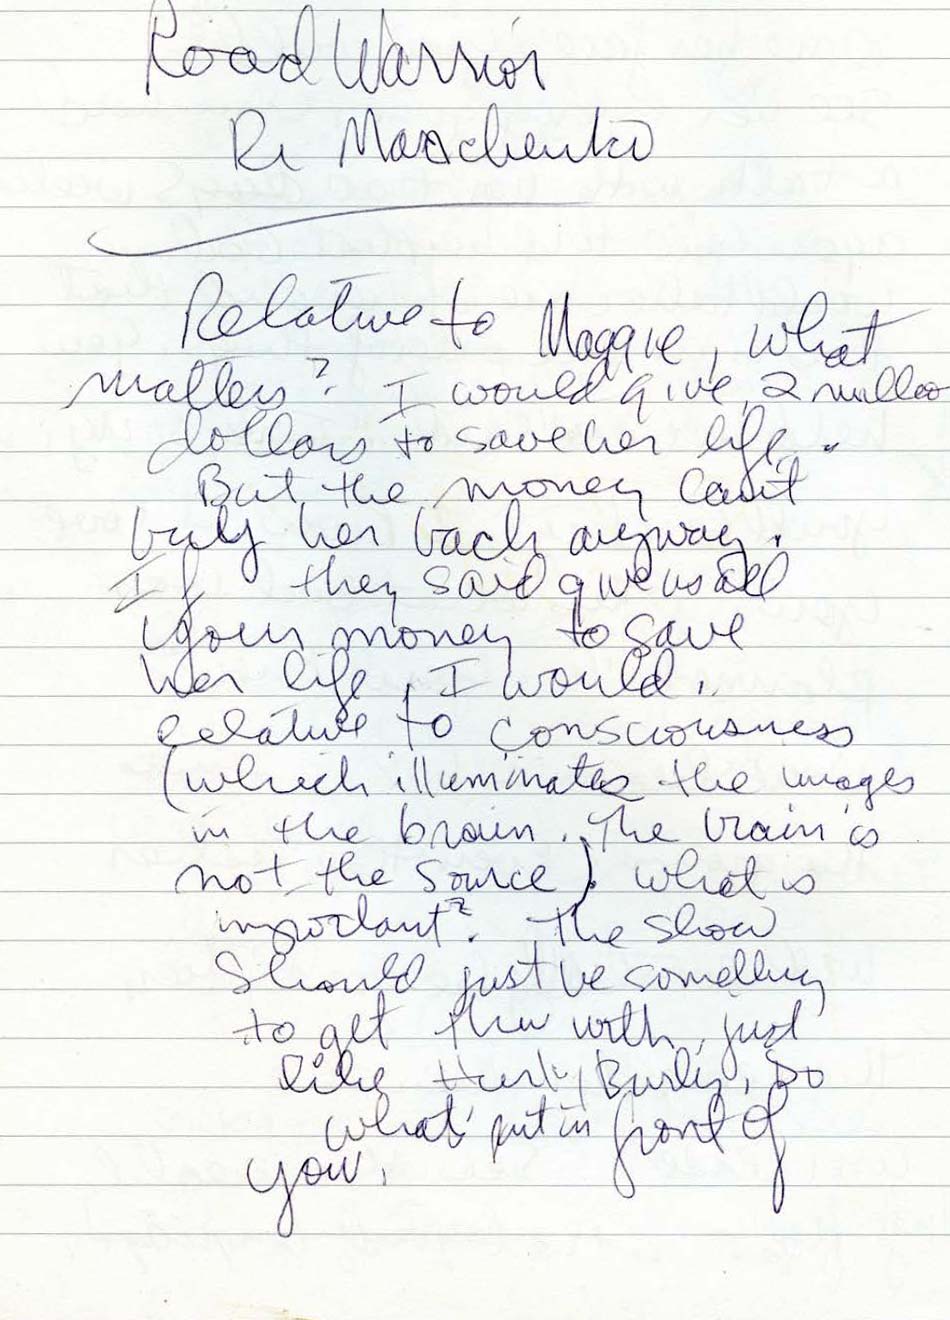 Road Warrior
Ri Maschenko
Relative to Maggie, what
matters? I would give 2 million
dollars to save her life.
But the money can't
buy her back anyway.
If they said give us all
your money to save
her life, I would.
relative to consciousness
(which illuminates the images
in the brain. The brain is
not the source). what is
important? The show
should just be something
to get thru with, just
like HurlyBurly, Do
what's put in front of
you.